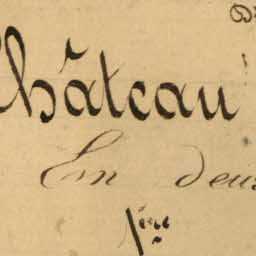 Château
En deux
1ère